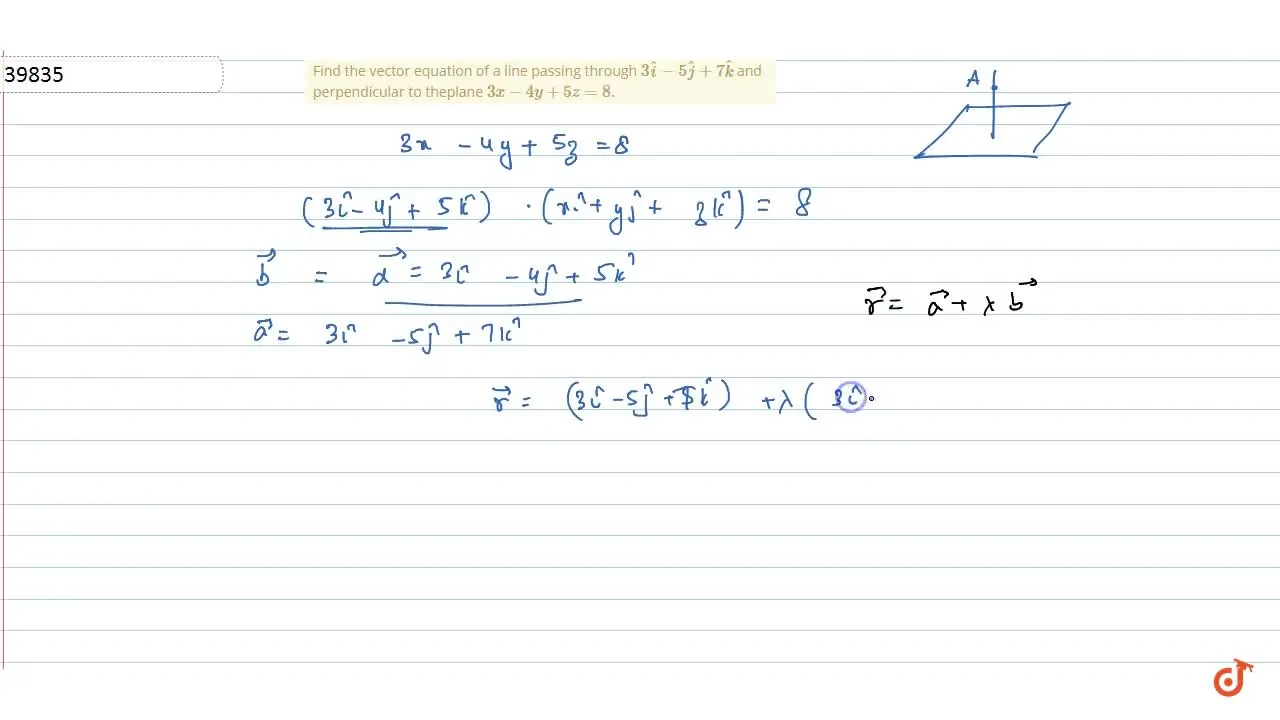 39835
Find the vector equation of a line passing through 3î − 5ĵ + 7k̂ and
perpendicular to theplane 3x − 4y + 5z = 8.
A
3x − 4y + 5z = 8
(3î − 4ĵ + 5k̂) · (xî + yĵ + zk̂) = 8
b⃗ = a⃗ = 3î − 4ĵ + 5k̂
r⃗ = a⃗ + λ b⃗
a⃗ = 3î − 5ĵ + 7k̂
r⃗ = (3î − 5ĵ + 7k̂) + λ ( 3î